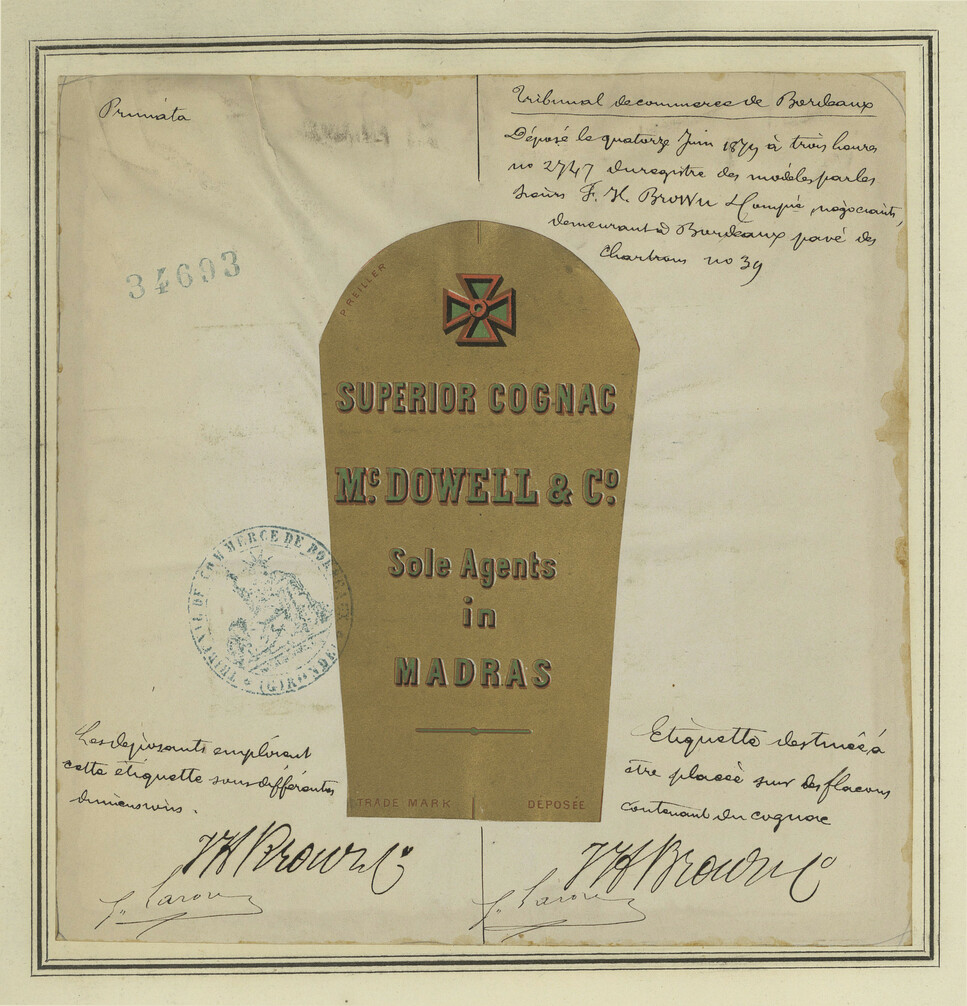 Primata
Tribunal de commerce de Bordeaux
Déposé le quatorze Juin 1879 à trois heures
no 2747 du registre des modèles par les
sieurs F. H. Brown & Compie, négociants,
demeurant à Bordeaux pavé des
Chartrons no 39
34693
P. REILLER
SUPERIOR COGNAC
Mc. DOWELL & Co.
Sole Agents
in
MADRAS
TRIBUNAL DE COMMERCE DE BORDEAUX
(GIRONDE)
TRADE MARK
DÉPOSÉE
Les déposants emploient
cette étiquette sous différentes
dimensions.
Etiquette destinée à
être placée sur des flacons
contenant du cognac
FH Brown Co
FH Brown Co